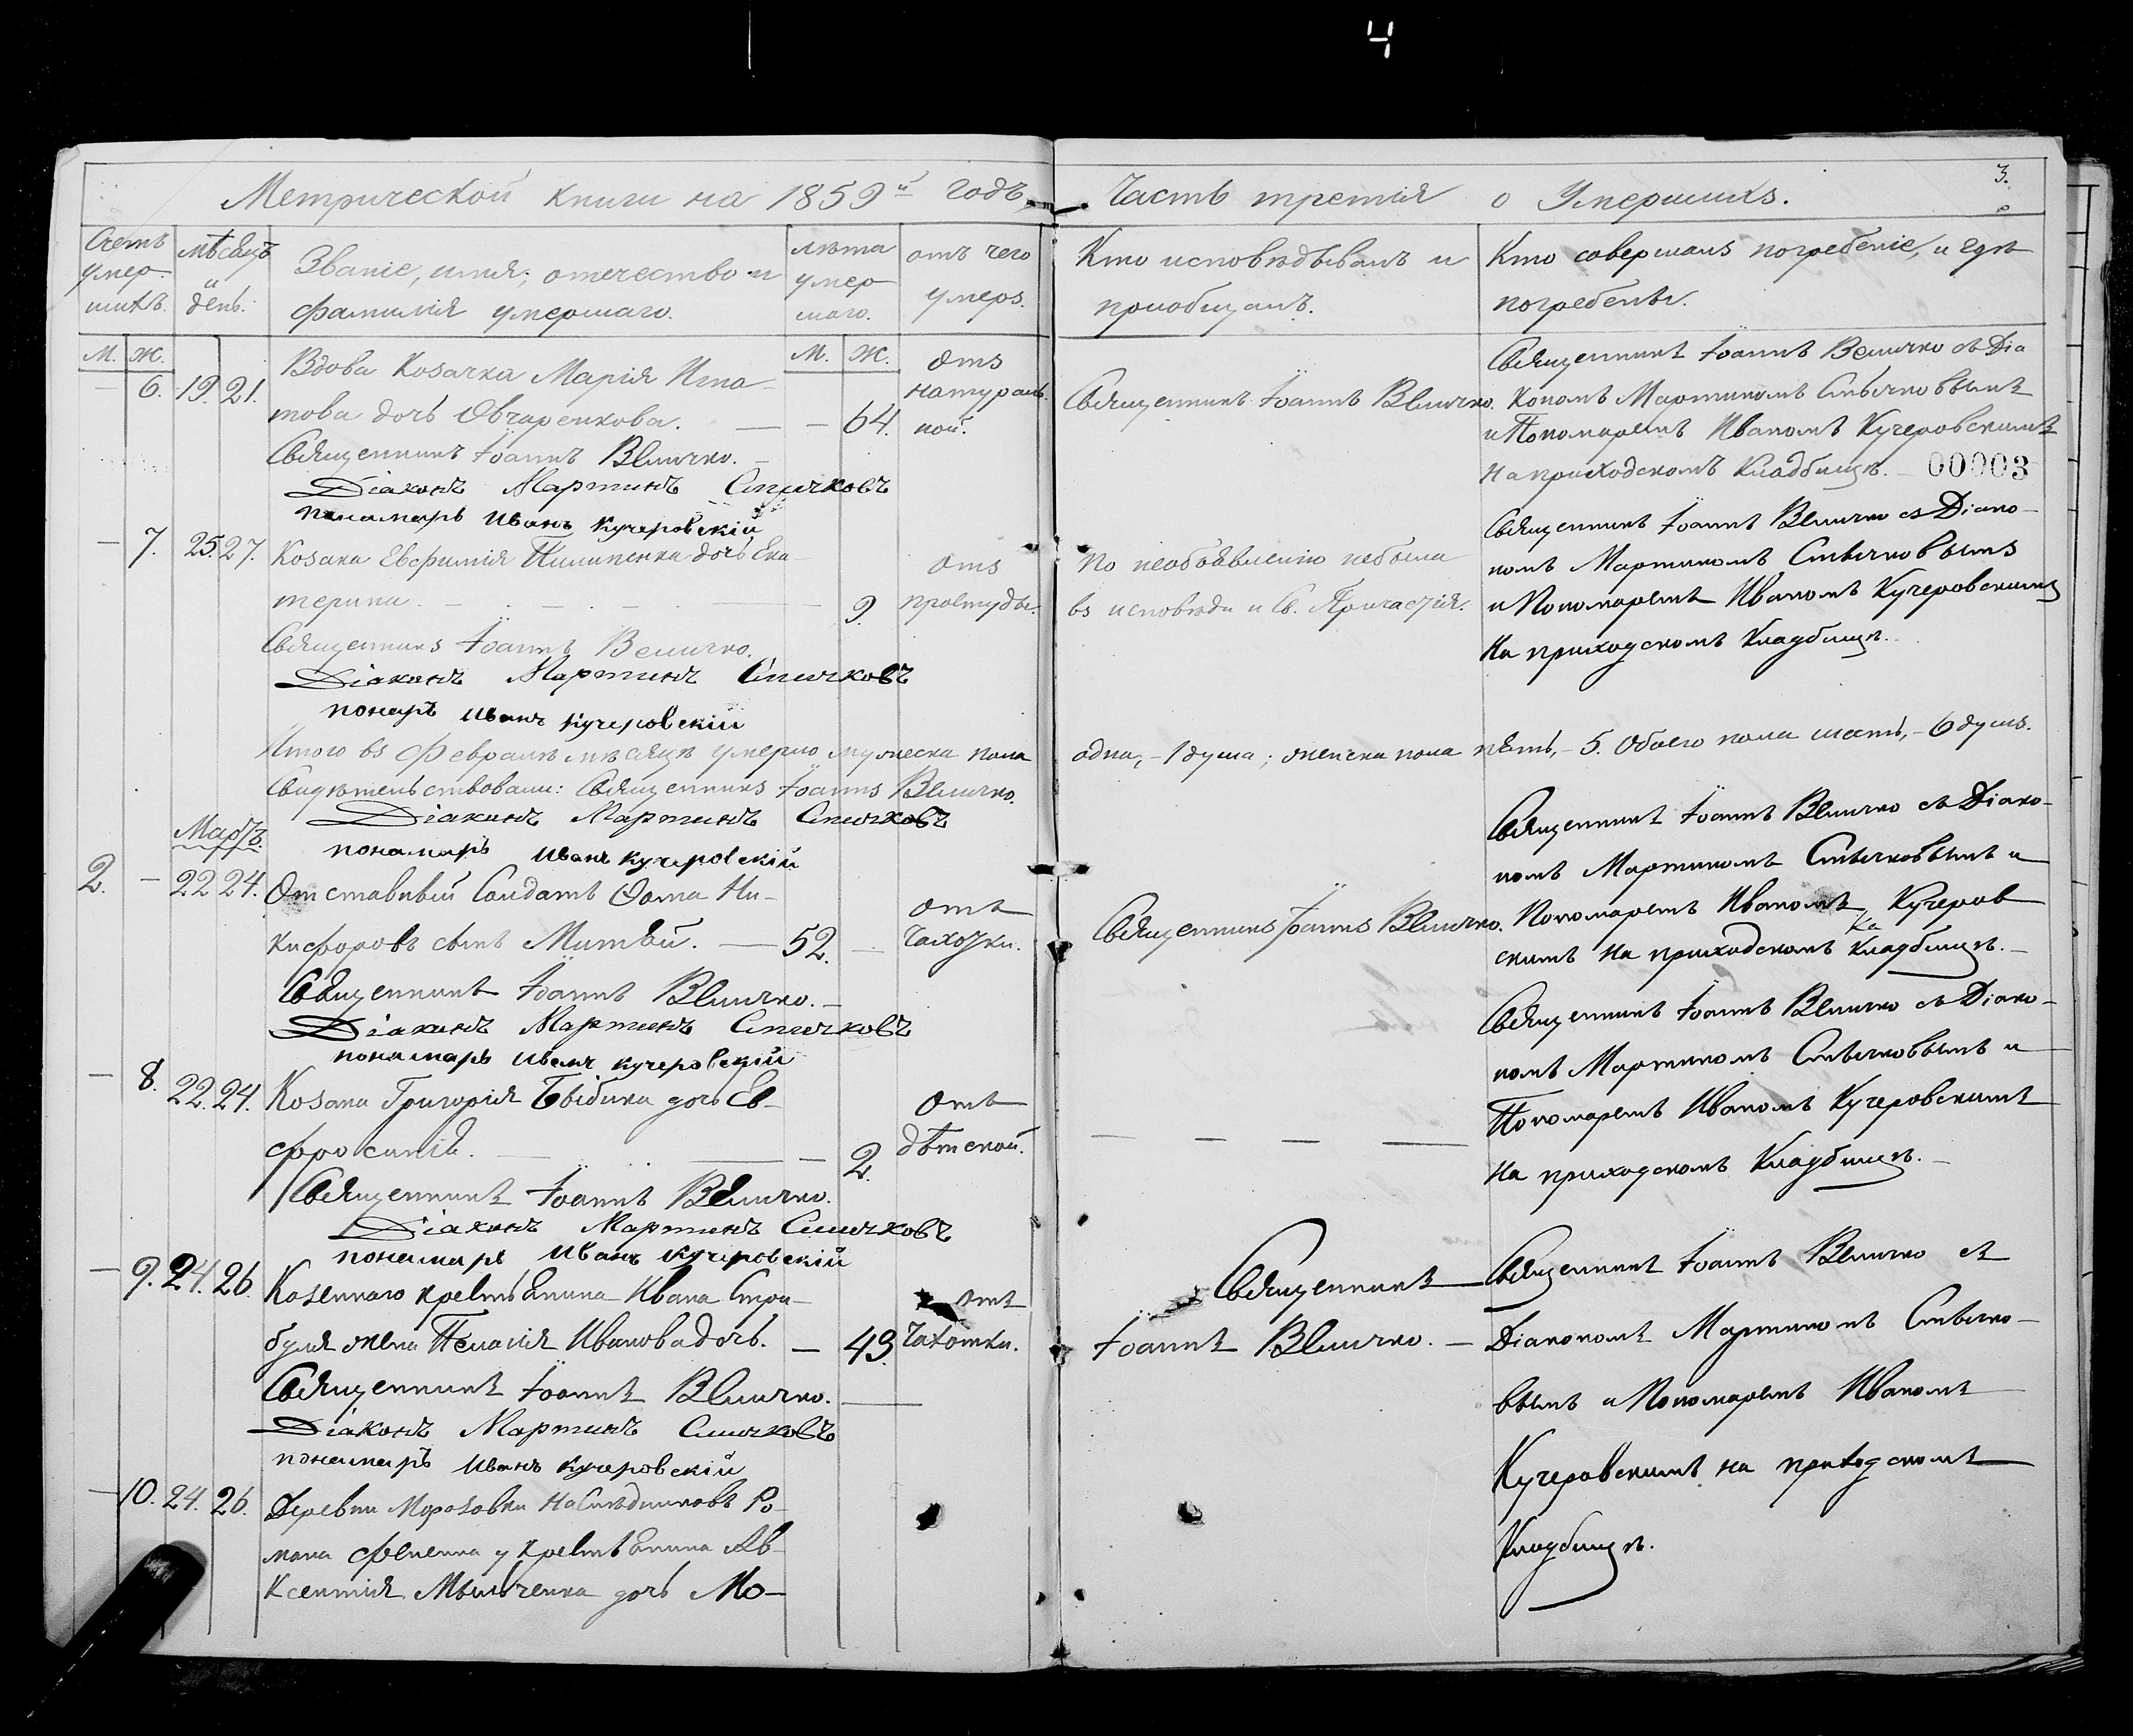 4
3.
Метрической книги на 1859й годъ,
Часть третія о Умершихъ.
Счетъ умер- шихъ.
мѣсяцъ и день.
Званіе, имя, отечество и
фамилія умершаго.
лѣта умер- шаго.
отъ чего умеръ.
Кто исповѣдывалъ и
приобщалъ.
Кто совершалъ погребеніе, и гдѣ
погребены.
М. Ж.
М. Ж.
— 6. 19. 21.
Вдова Козачка Марія Игна-
това дочь Овчаренкова. — — 64.
отъ
натураль
ной.
Священникъ Іоаннъ Величко.
Діаконъ Мартинъ Спичковъ
пономарь Иванъ Кучеровскій
Священникъ Іоаннъ Величко.
Священникъ Іоаннъ Величко съ Діа
кономъ Мартиномъ Спѣчковымъ
и Пономаремъ Иваномъ Кучеровскимъ
На приходскомъ Кладбищѣ.
00003
— 7. 25. 27.
Козака Евфимія Пилипенка дочь Ека-
терина. — 9.
отъ
простуды.
Священникъ Іоаннъ Величко.
Діаконъ Мартинъ Спичковъ
понарь Иванъ Кучеровскій
По необъявленію небыла
въ исповѣди и Св. Причастія.
Священникъ Іоаннъ Величко съ Діако-
номъ Мартиномъ Спѣчковымъ
и Пономаремъ Иваномъ Кучеровскимъ
На приходскомъ Кладбищѣ.
Итого въ Февралѣ мѣсяцѣ умерло мужеска пола
одна, - 1 душа; женска пола пять, - 5. Обоего пола шесть, - 6 душъ.
Свидѣтельствовали: Священникъ Іоаннъ Величко.
Діаконъ Мартинъ Спичковъ
пономарь Иванъ Кучеровскій
Мартъ.
2. — 22 24.
Отставный Солдатъ Фома Ни-
кифоровъ сынъ Митяй. — 52. —
отъ
Чахотки.
Священникъ Іоаннъ Величко. —
Діаконъ Мартинъ Спичковъ
пономарь Иванъ Кучеровскій
Священникъ Іоаннъ Величко.
Священникъ Іоаннъ Величко съ Діако-
номъ Мартиномъ Спѣчковымъ и
Пономаремъ Иваномъ Кучеров
скимъ на приходскомъ Кладбищѣ. —
— 8. 22. 24.
Козака Григорія Бибика дочь Ев-
фросинія. — — 2.
отъ
дѣтской.
Священникъ Іоаннъ Величко.
Діаконъ Мартинъ Спичковъ
пономарь Иванъ Кучеровскій
— — — —
Священникъ Іоаннъ Величко съ Діако-
номъ Мартиномъ Спѣчковымъ и
Пономаремъ Иваномъ Кучеровскимъ
На приходскомъ Кладбищѣ. —
— 9. 24. 26.
Козеннаго крестьянина Ивана Стри-
буля жена Пелагія Иванова дочь. — 43.
отъ
Чахотки.
Священникъ Іоаннъ Величко.
Діаконъ Мартинъ Спичковъ
пономарь Иванъ Кучеровскій
Священникъ
Іоаннъ Величко. —
Священникъ Іоаннъ Величко съ
Діакономъ Мартиномъ Спѣчко-
вымъ и Пономаремъ Иваномъ
Кучеровскимъ на приходскомъ
Кладбищѣ.
— 10. 24. 26.
Деревни Морозовки Наслѣдниковъ Ро-
мана крестьянина Ав-
ксентія дочь Мо-